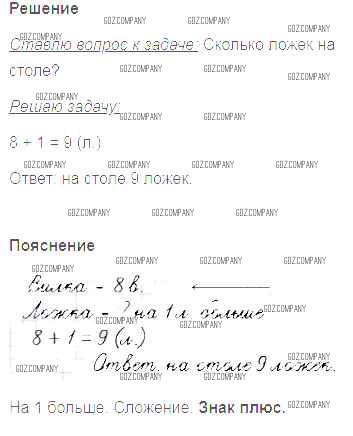 Решение
GDZCOMPANY GDZCOMPANY GDZCOMPANY
Ставлю вопрос к задаче: Сколько ложек на
столе? GDZCOMPANY GDZCOMPANY GDZCOMPANY
GDZCOMPANY
Решаю задачу:
GDZCOMPANY GDZCOMPANY
8 + 1 = 9 (л.)
GDZCOMPANY GDZCOMPANY GDZCOMPANY GDZCOMPANY
Ответ: на столе 9 ложек.
GDZCOMPANY GDZCOMPANY GDZCOMPANY
Пояснение
GDZCOMPANY GDZCOMPANY
GDZCOMPANY
Вилка - 8 в.
GDZCOMPANY GDZCOMPANY GDZCOMPANY
Ложка - ? на 1 л. больше
8 + 1 = 9 (л.)
GDZCOMPANY GDZCOMPANY GDZCOMPANY
Ответ. на столе 9 ложек.
GDZCOMPANY GDZCOMPANY GDZCOMPANY
GDZCOMPANY GDZCOMPANY
На 1 больше. Сложение. Знак плюс. GDZCOMPANY